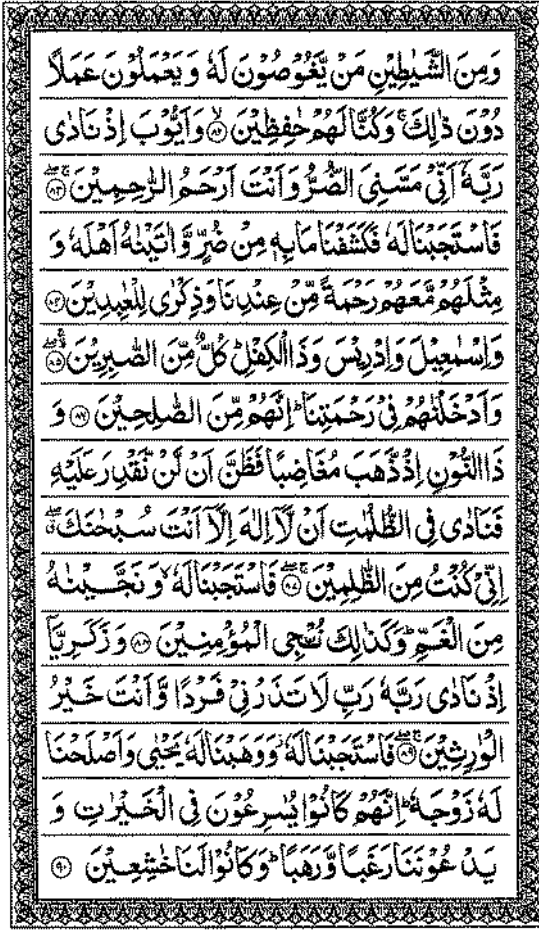 وَمِنَ الشَّيٰطِيْنِ مَنْ يَّغُوْصُوْنَ لَهٗ وَيَعْمَلُوْنَ عَمَلًا
دُوْنَ ذٰلِكَ ۚ وَكُنَّا لَهُمْ حٰفِظِيْنَ ۙ﴿۸۲﴾ وَاَيُّوْبَ اِذْ نَادٰى
رَبَّهٗۤ اَنِّيْ مَسَّنِيَ الضُّرُّ وَاَنْتَ اَرْحَمُ الرّٰحِمِيْنَ ۚۖ﴿۸۳﴾
فَاسْتَجَبْنَا لَهٗ فَكَشَفْنَا مَا بِهٖ مِنْ ضُرٍّ وَّاٰتَيْنٰهُ اَهْلَهٗ وَ
مِثْلَهُمْ مَّعَهُمْ رَحْمَةً مِّنْ عِنْدِنَا وَذِكْرٰى لِلْعٰبِدِيْنَ ﴿۸۴﴾
وَاِسْمٰعِيْلَ وَاِدْرِيْسَ وَذَا الْكِفْلِ ؕ كُلٌّ مِّنَ الصّٰبِرِيْنَ ۚۖ﴿۸۵﴾
وَاَدْخَلْنٰهُمْ فِيْ رَحْمَتِنَا ؕ اِنَّهُمْ مِّنَ الصّٰلِحِيْنَ ﴿۸۶﴾ وَ
ذَا النُّوْنِ اِذْ ذَّهَبَ مُغَاضِبًا فَظَنَّ اَنْ لَّنْ نَّقْدِرَ عَلَيْهِ
فَنَادٰى فِي الظُّلُمٰتِ اَنْ لَّاۤ اِلٰهَ اِلَّاۤ اَنْتَ سُبْحٰنَكَ ۖ
اِنِّيْ كُنْتُ مِنَ الظّٰلِمِيْنَ ۚۖ﴿۸۷﴾ فَاسْتَجَبْنَا لَهٗ ۙ وَنَجَّيْنٰهُ
مِنَ الْغَمِّ ؕ وَكَذٰلِكَ نُـْۨجِي الْمُؤْمِنِيْنَ ﴿۸۸﴾ وَزَكَرِيَّاۤ
اِذْ نَادٰى رَبَّهٗ رَبِّ لَا تَذَرْنِيْ فَرْدًا وَّاَنْتَ خَيْرُ
الْوٰرِثِيْنَ ۚۖ﴿۸۹﴾ فَاسْتَجَبْنَا لَهٗ ؗ وَوَهَبْنَا لَهٗ يَحْيٰى وَاَصْلَحْنَا
لَهٗ زَوْجَهٗ ؕ اِنَّهُمْ كَانُوْا يُسٰرِعُوْنَ فِي الْخَيْرٰتِ وَ
يَدْعُوْنَنَا رَغَبًا وَّرَهَبًا ؕ وَكَانُوْا لَنَا خٰشِعِيْنَ ﴿۹۰﴾